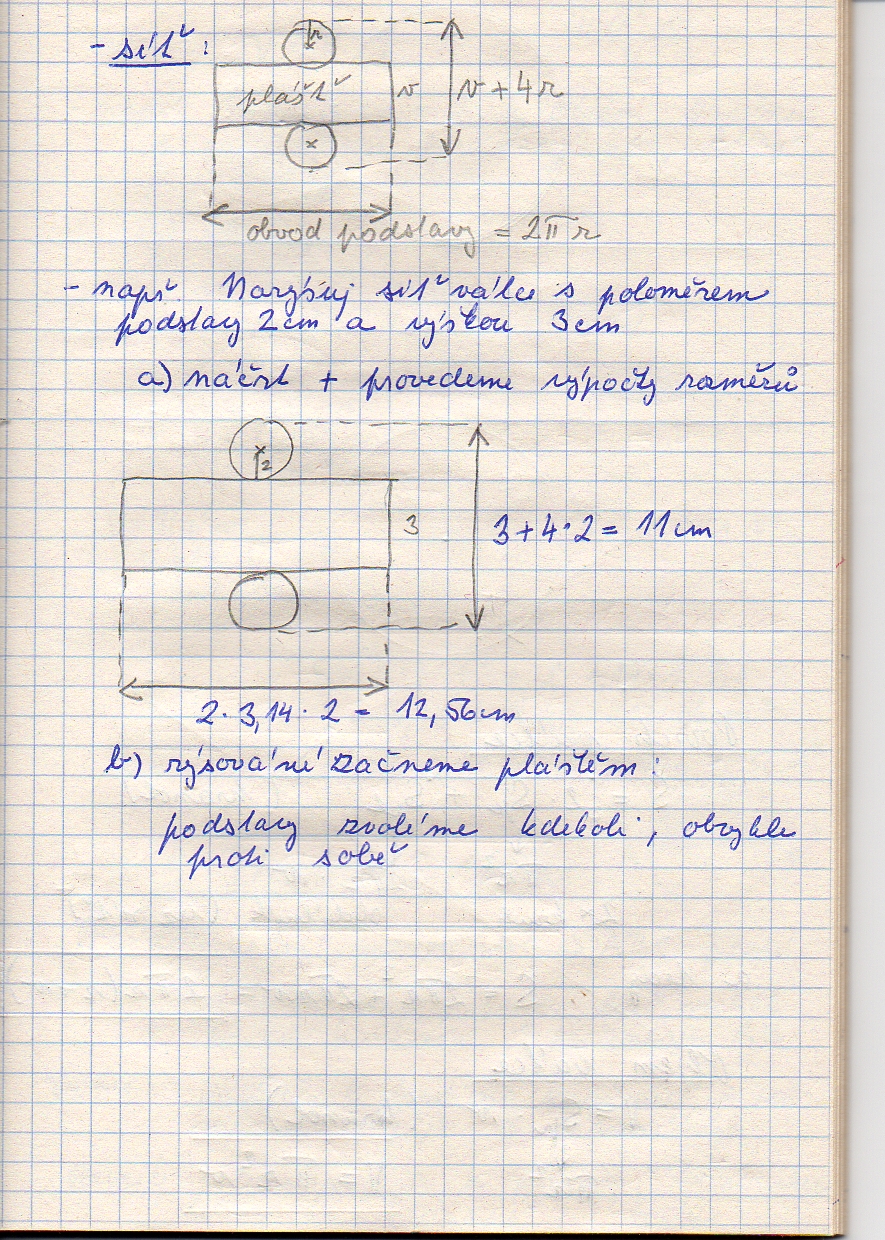 - síť :
r
plášť v v + 4r
x
obvod podstavy = 2πr
- např. Narýsuj síť válce s poloměrem
podstavy 2cm a výškou 3cm
a) náčrt + provedeme výpočty rozměrů
x
2
3
3 + 4 · 2 = 11 cm
2 · 3,14 · 2 = 12,56 cm
b) rýsování začneme pláštěm :
podstavy zvolíme kdekoli, obvykle
proti sobě